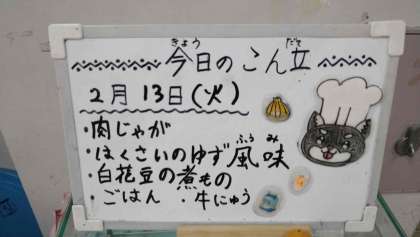 今日のこん立
2月13日(火)
・肉じゃが
・はくさいのゆず風味
・白花豆の煮もの
・ごはん ・牛にゅう